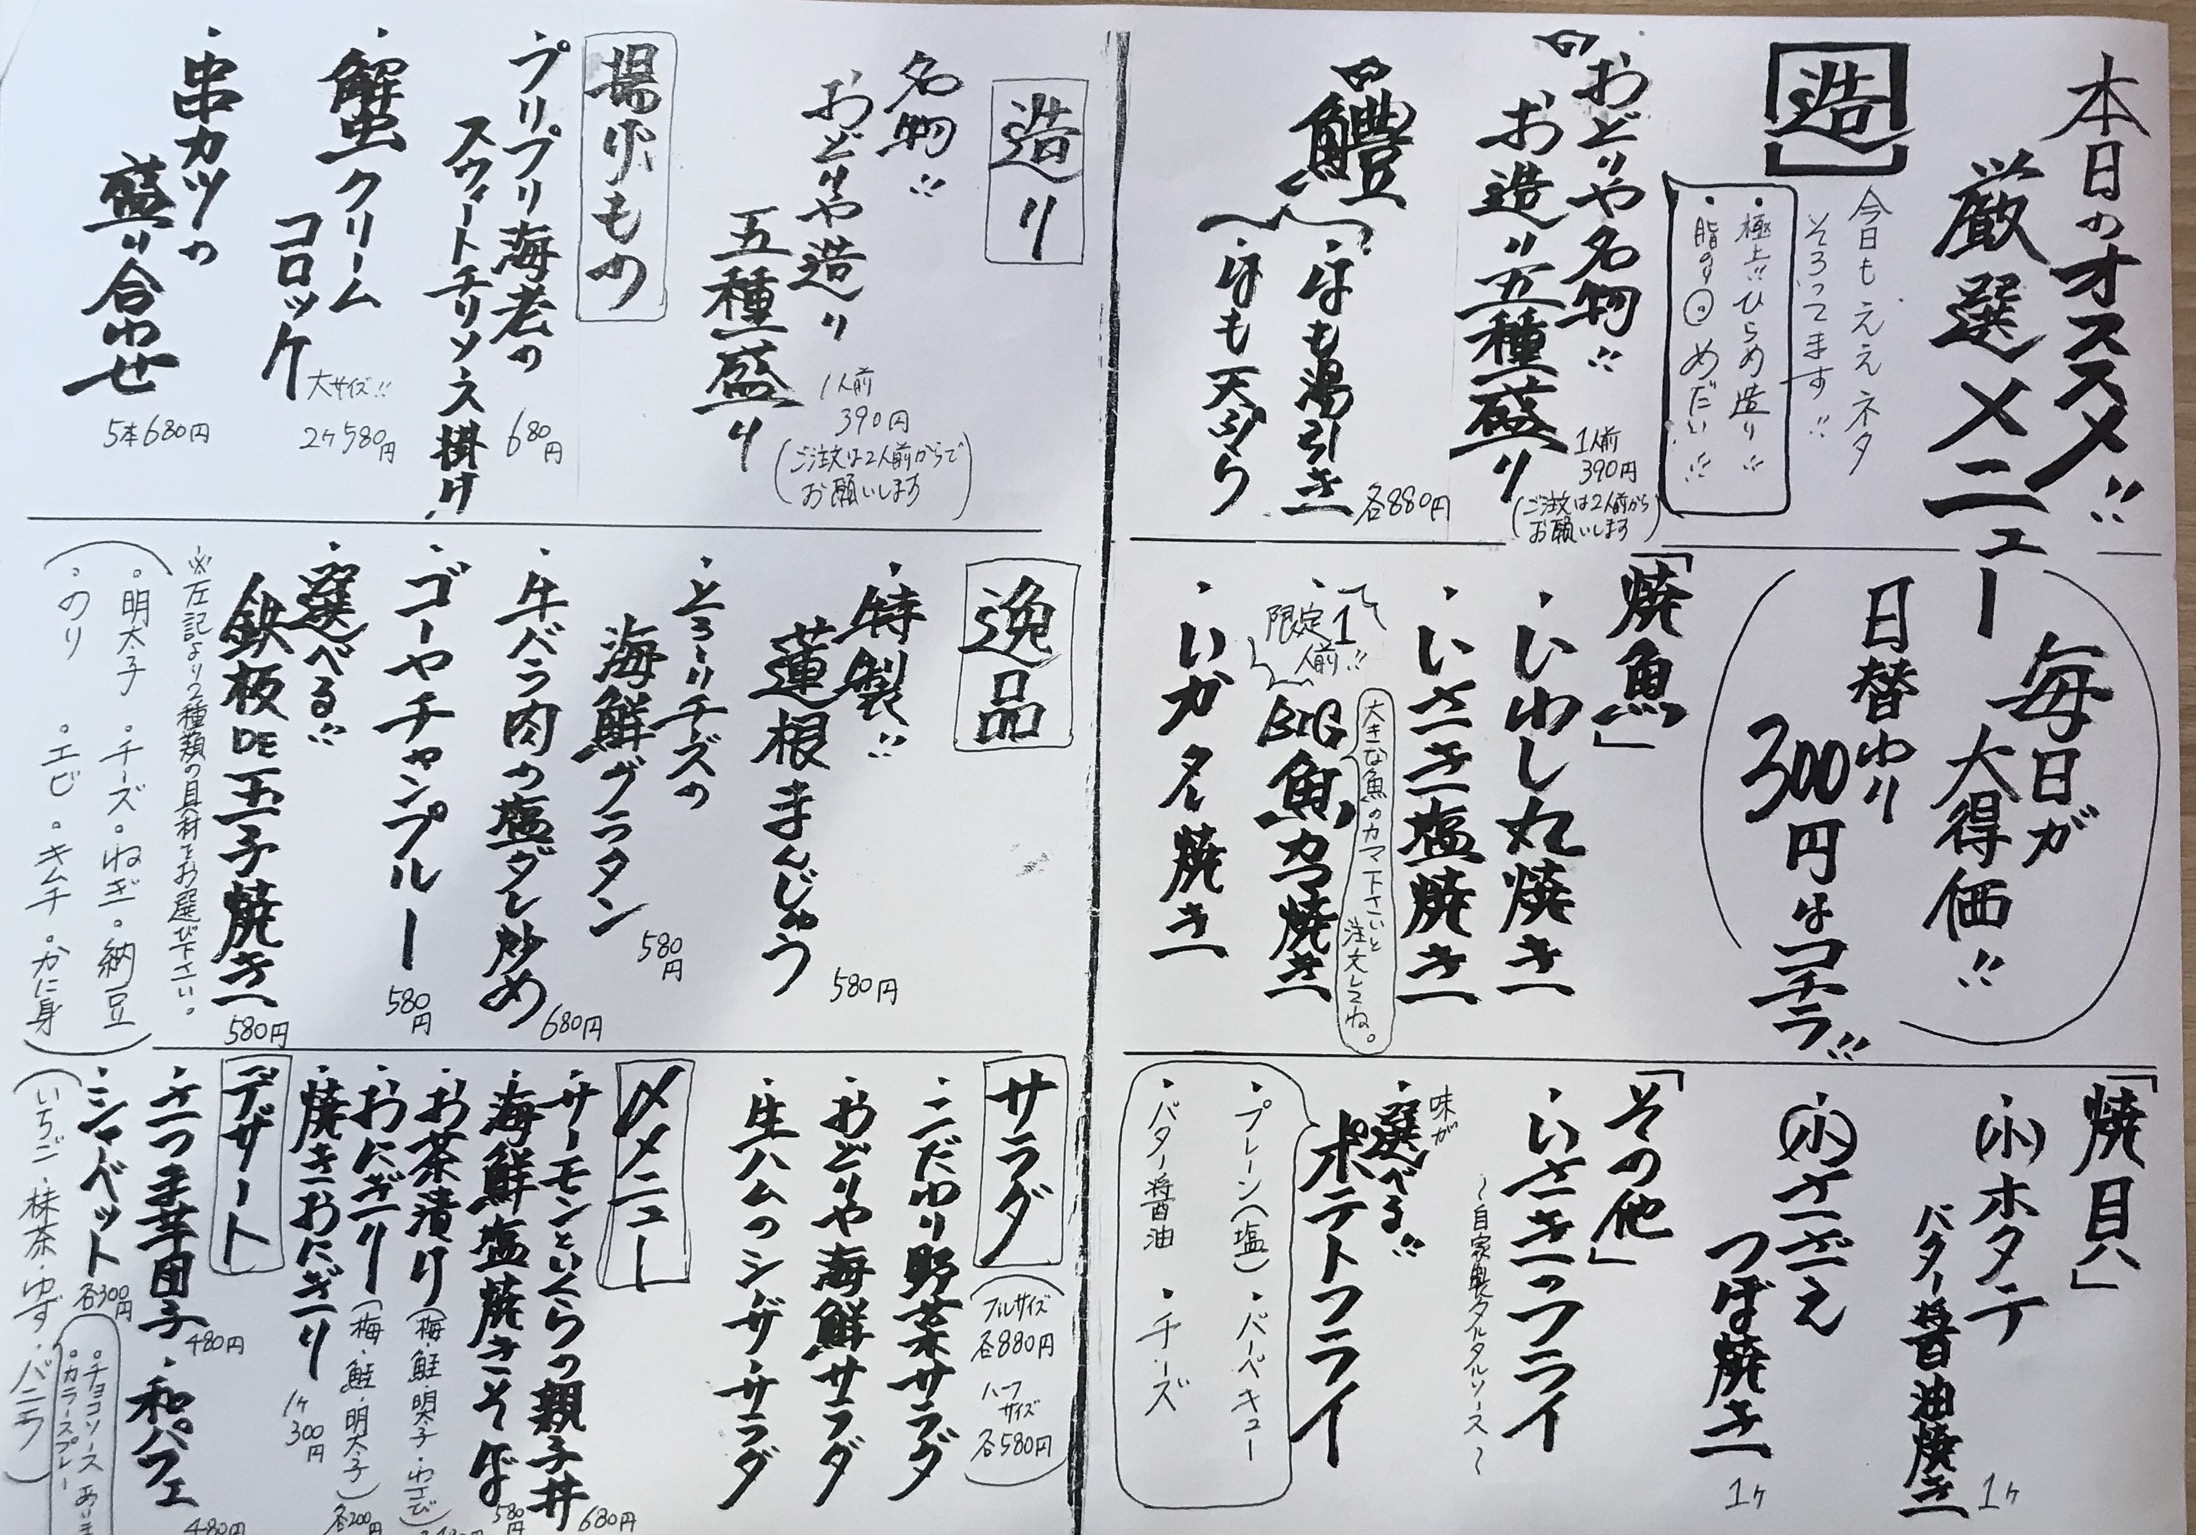 本日のオススメ!!
厳選メニュー
造
今日もええネタ
そろってます!!
・極上!!ひらめ造り!!
・脂の◎めだい!!
おどりや名物!!
お造り五種盛り
1人前
390円
(ご注文は2人前から
お願いします
鱧
・はも湯引き
・はも天ぷら
各880円
毎日が
大得価!!
日替わり
300円はコチラ!!
「焼魚」
・いわし丸焼き
・いさき塩焼き
・限定1
人前!!
BIG魚カマ焼き
大きな魚のカマ下さいと
注文してね。
・いかタレ焼き
「焼貝」
・(小)ホタテ
バター醤油焼き
1ケ
・(小)さざえ
つぼ焼き
1ケ
「その他」
・いさきのフライ
〜自家製タルタルソース〜
味が
・選べる!!
ポテトフライ
・プレーン(塩)・バーベキュー
・バター醤油・チーズ
造り
名物!!
おどりや造り
五種盛り
1人前
390円
(ご注文は2人前からで
お願いします)
揚げもの
・プリプリ海老の
スウィートチリソース掛け
680円
・蟹クリーム
コロッケ
大サイズ!!
2ケ580円
・串カツの
盛り合わせ
5本680円
逸品
・特製!!
蓮根まんじゅう
580円
・とろ〜りチーズの
海鮮グラタン
580円
・牛バラ肉の塩ダレ炒め
680円
・ゴーヤチャンプルー
580円
・選べる!!
鉄板DE玉子焼き
580円
※左記より2種類の具材をお選び下さい。
(。明太子。チーズ。ねぎ。納豆
。のり。エビ。キムチ。かに身)
サラダ
(フルサイズ
各880円
ハーフ
サイズ
各580円)
・こだわり野菜サラダ
・おどりや海鮮サラダ
・生ハムのシーザーサラダ
〆メニュー
・サーモンといくらの親子丼
680円
・海鮮塩焼きそば
580円
・お茶漬け(梅・鮭・明太子・わさび)
・おにぎり(梅・鮭・明太子)
各200円
・焼きおにぎり
1ケ
300円
デザート
・さつま芋団子
480円
・和パフェ
480円
・シャーベット
各300円
(いちご・抹茶・ゆず・バニラ)
。チョコソース
。カラースプレー